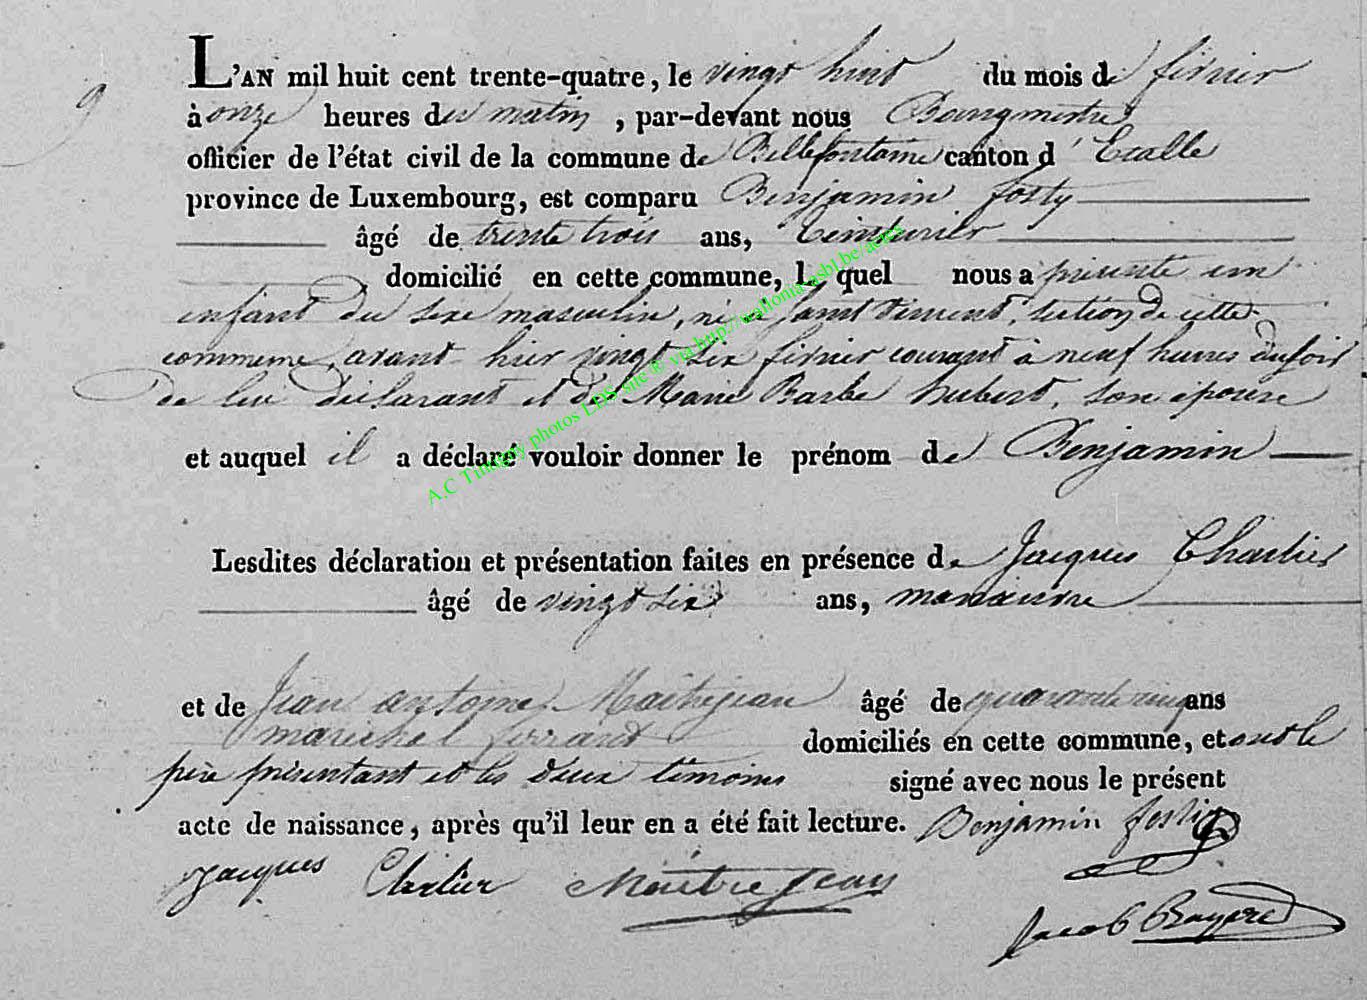 9
L'AN mil huit cent trente-quatre, le vingt huit du mois de fevrier
à onze heures du matin, par-devant nous Bourgmestre
officier de l'état civil de la commune de Bellefontaine canton d'Etalle
province de Luxembourg, est comparu Benjamin fosty
âgé de trente trois ans, teinturier
domicilié en cette commune, lequel nous a présenté un
enfant du sexe masculin, né à saint vincent, section de cette
commune, avant hier vingt six fevrier courant à neuf heures du soir
de lui déclarant et de Marie Barbe hubert, son épouse
et auquel il a déclaré vouloir donner le prénom de Benjamin
Lesdites déclaration et présentation faites en présence de Jacques Charlier
âgé de vingt six ans, manoeuvre
et de Jean antoine Maitrejean âgé de quarante cinq ans
marechal ferrant domiciliés en cette commune, et ont le
père présentant et les deux témoins signé avec nous le présent
acte de naissance, après qu'il leur en a été fait lecture. Benjamin fosty
Jacques Charlier Maitrejean
Jacob Bayard
A.C Tintigny photos LDS site ® via http://wallonia-asbl.be/actes